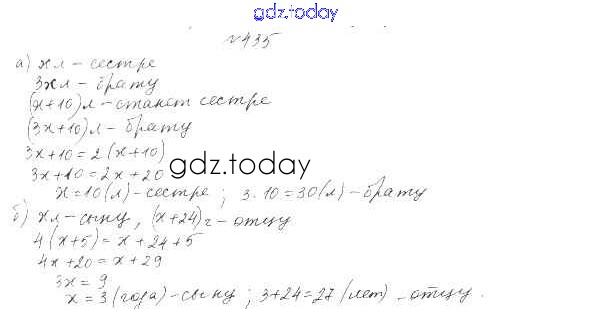 gdz.today
№435
а) хл - сестре
3хл - брату
(х+10)л - станет сестре
(3х+10)л - брату
3х+10=2(х+10)
gdz.today
3х+10=2х+20
х=10(л)-сестре; 3·10=30(л)-брату
б) хл-сыну, (х+24)г-отцу
4(х+5)=х+24+5
4х+20=х+29
3х=9
х=3(года)-сыну; 3+24=27(лет)-отцу.